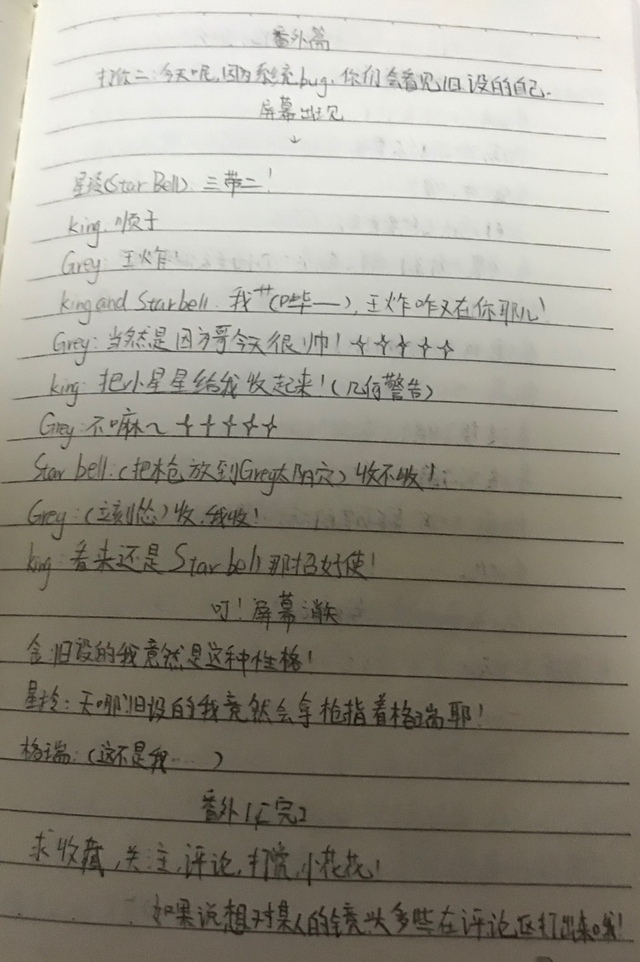 番外篇
打你二:今天呢,因为系统bug,你们会看见旧设的自己.
屏幕出现
↓
星玲(Star Bell):三带二!
king:顺子
Grey:王炸!
king and Star bell:我**(哔——),王炸咋又在你那儿!
Grey:当然是因为哥今天很帅!✧✧✧✧✧
king:把小星星给我收起来!(几何警告)
Grey:不嘛~✧✧✧✧✧
Star bell:(把枪放到Grey太阳穴)收不收!
Grey:(立刻怂)收,我收!
king:看来还是Star bell那招好使!
叮!屏幕消失
金:旧设的我竟然是这种性格!
星玲:天哪!旧设的我竟然会拿枪指着格瑞耶!
格瑞:(这不是我……)
番外1[完]
求收藏,关注,评论,打赏,小花花!
如果说想对某人的镜头多些在评论区打出来哦!